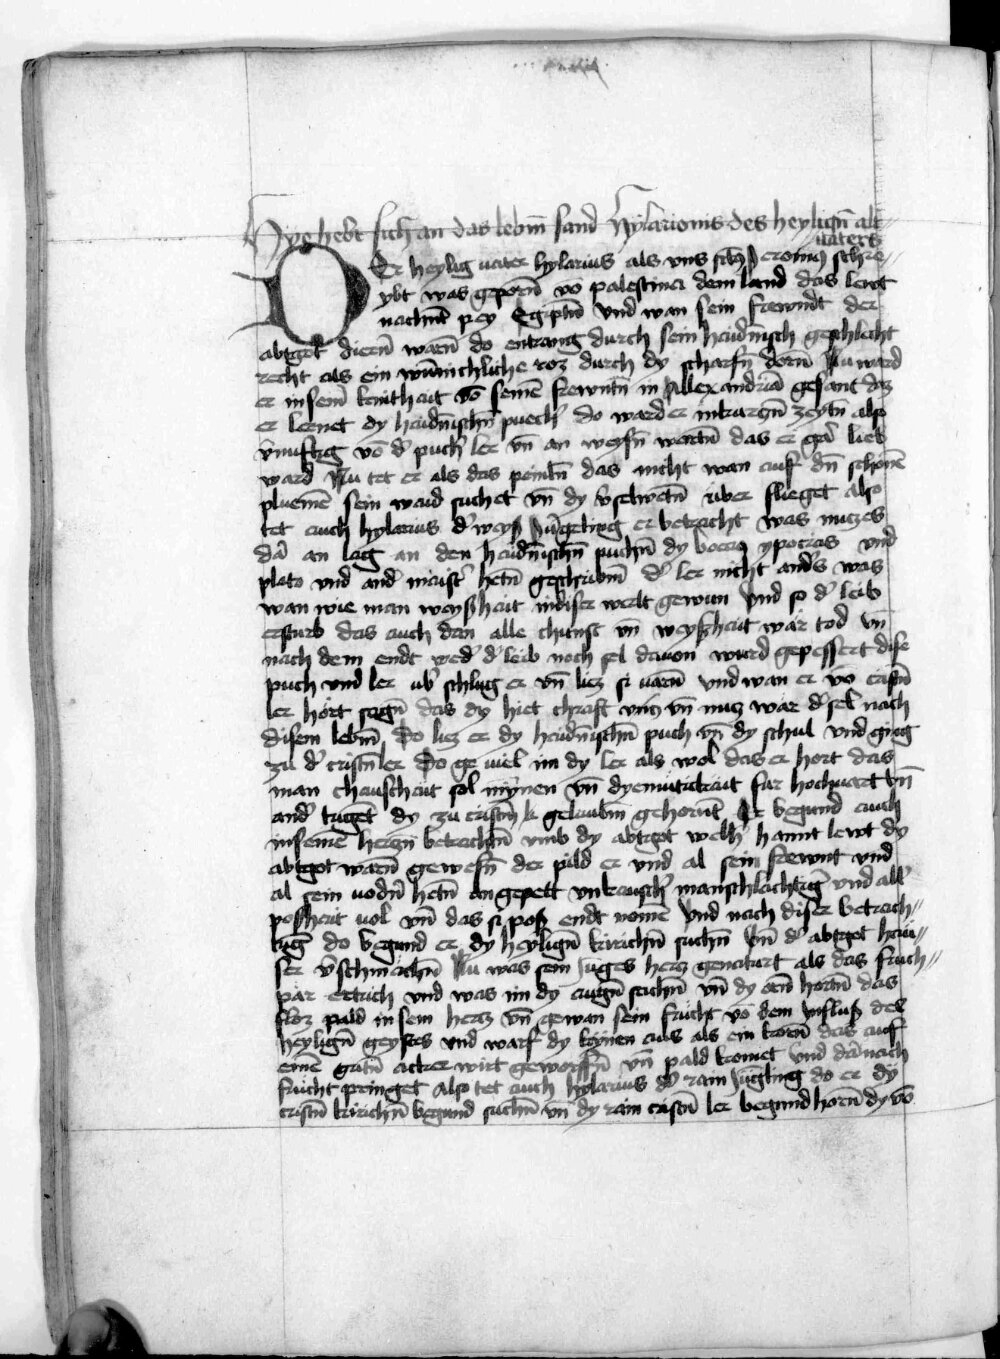 Hye hebt sich an das lebm̄ sand Hylarionis des heyligñ alt
uaters
DEr heylig uater hylarius als vns sctūs Jeronim9 schre//
ybt was geporñ vō palestina dem land das lewt
nachnt pey Egiptñ Vnd wan sein frewndt der
abtgot dierñ warñ do entrang durch sein haidnisch geschlācht
recht als ein wūnichliche roz durch dy scharfñ dorñ Nu ward
er in seīn kinthait vō seinē frewntñ in Allexandriā gesant daz
er lernet dy haidnischñ puech' do ward er in kurczñ zeytñ also
v̄nuftig vō d' puch' ler vñ an weysñ wortñ das er gar lieb
ward Nu tet er als das peinlñ das nicht wan auf dñ schonē
pluemē sein waid suchet vñ dy v̄selwetñ über flieget also
tet auch hylarius d' weyß Jūgeling er betracht was nuczes
dā an lag an den haidnischñ puchñ dy boecz ypocras vnd
plato vnd and' maist' hetñ geschribm̄ d' ler nicht and's was
wan wie man weyßhait in diser werlt gewun Vnd so d' leib
ersturb das auch dan alle chunst vñ weyßhait wār tod vñ
nach dem endt wed' d' leib noch sel dauon wurd gepessert dise
puch vnd ler ub' schlug er vñ liez si uarñ vnd wan er vō cristñ
ler hört sagñ das dy hiet chraft vncz vñ nucz wār d' sel nach
disem lebm̄ Do liez er dy haidnischñ puch vñ dy schul vnd gieng
zu d' cristñ ler Do ge uiel im dy ler als wol das er hort das
man chauschait sol mȳnen vñ dyemütichait für hochuart vñ
and' tugēt dy zu cristm̄ gelaubm̄ gehornt Er begund auch
in seinem herczñ betrachtñ vmb dy abtgot welh' hannt lewt dy
abtgot warñ gewesñ der pild er vnd al sein frewnt vnd
al sein uodrñ hetñ an gepett vnkausch' manschlachtig' vnd all'
posheit uol vñ das si poß endt nomē Vnd nach diser betrach//
tūg do begund er dy heyligñ kirichñ suchñ Vñ d' abtgot heū//
ser v̄schmāchñ Nu was sein Juges hercz genaturt als das fruch//
pār ertrich vnd was im dy augñ sachñ vñ dy orñ hortñ das
floz pald in sein hercz vñ gewan sein frücht vō dem Influß des
heyligñ geystes vnd warf dy keynen aus als ein korñ das auf
einē gutñ acker wirt geworffñ vñ pald keomet vnd dānach
frücht pringet Also tet auch hylarius d' rain Jūgling do er dy
cristñ kirichñ begund suchñ vñ dy rain cristñ ler begund horñ dy vō